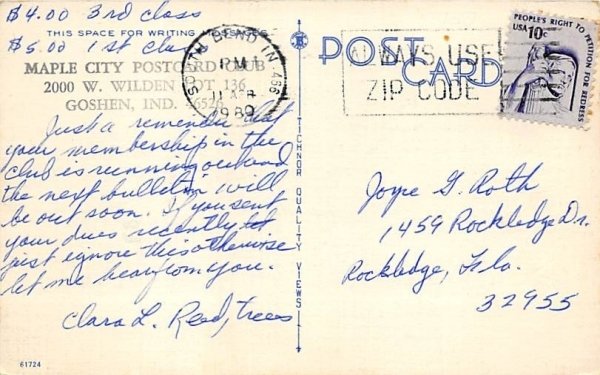 $4.00 3rd class
THIS SPACE FOR WRITING MESSAGES
$5.00 1st class
MAPLE CITY POSTCARD CLUB
2000 W. WILDEN LOT 136
GOSHEN, IND. 46526
Just a reminder that
your membership in the
club is running out and
the next bulletin will
be out soon. If you sent
your dues recently let
just ignore this otherwise
let me hear from you.
Clara L. Reed, treas
61724
TICHNOR QUALITY VIEWS
POST CARD
SOUTH BEND IN 466
PM
11 APR
1980
ALWAYS USE
ZIP CODE
PEOPLE'S RIGHT TO PETITION FOR REDRESS
USA 10c
Joyce G. Roth
1459 Rockledge Dr.
Rockledge, Fla.
32955